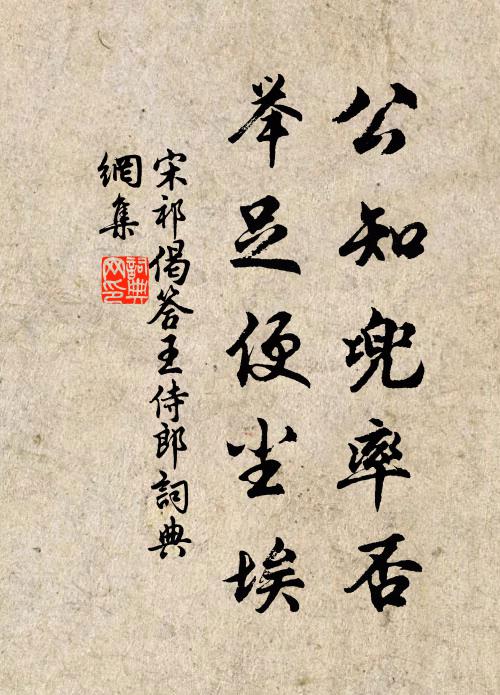 公知兜率否
举足便尘埃
宋祁偈答王侍郎詞典
網集
詞典网印